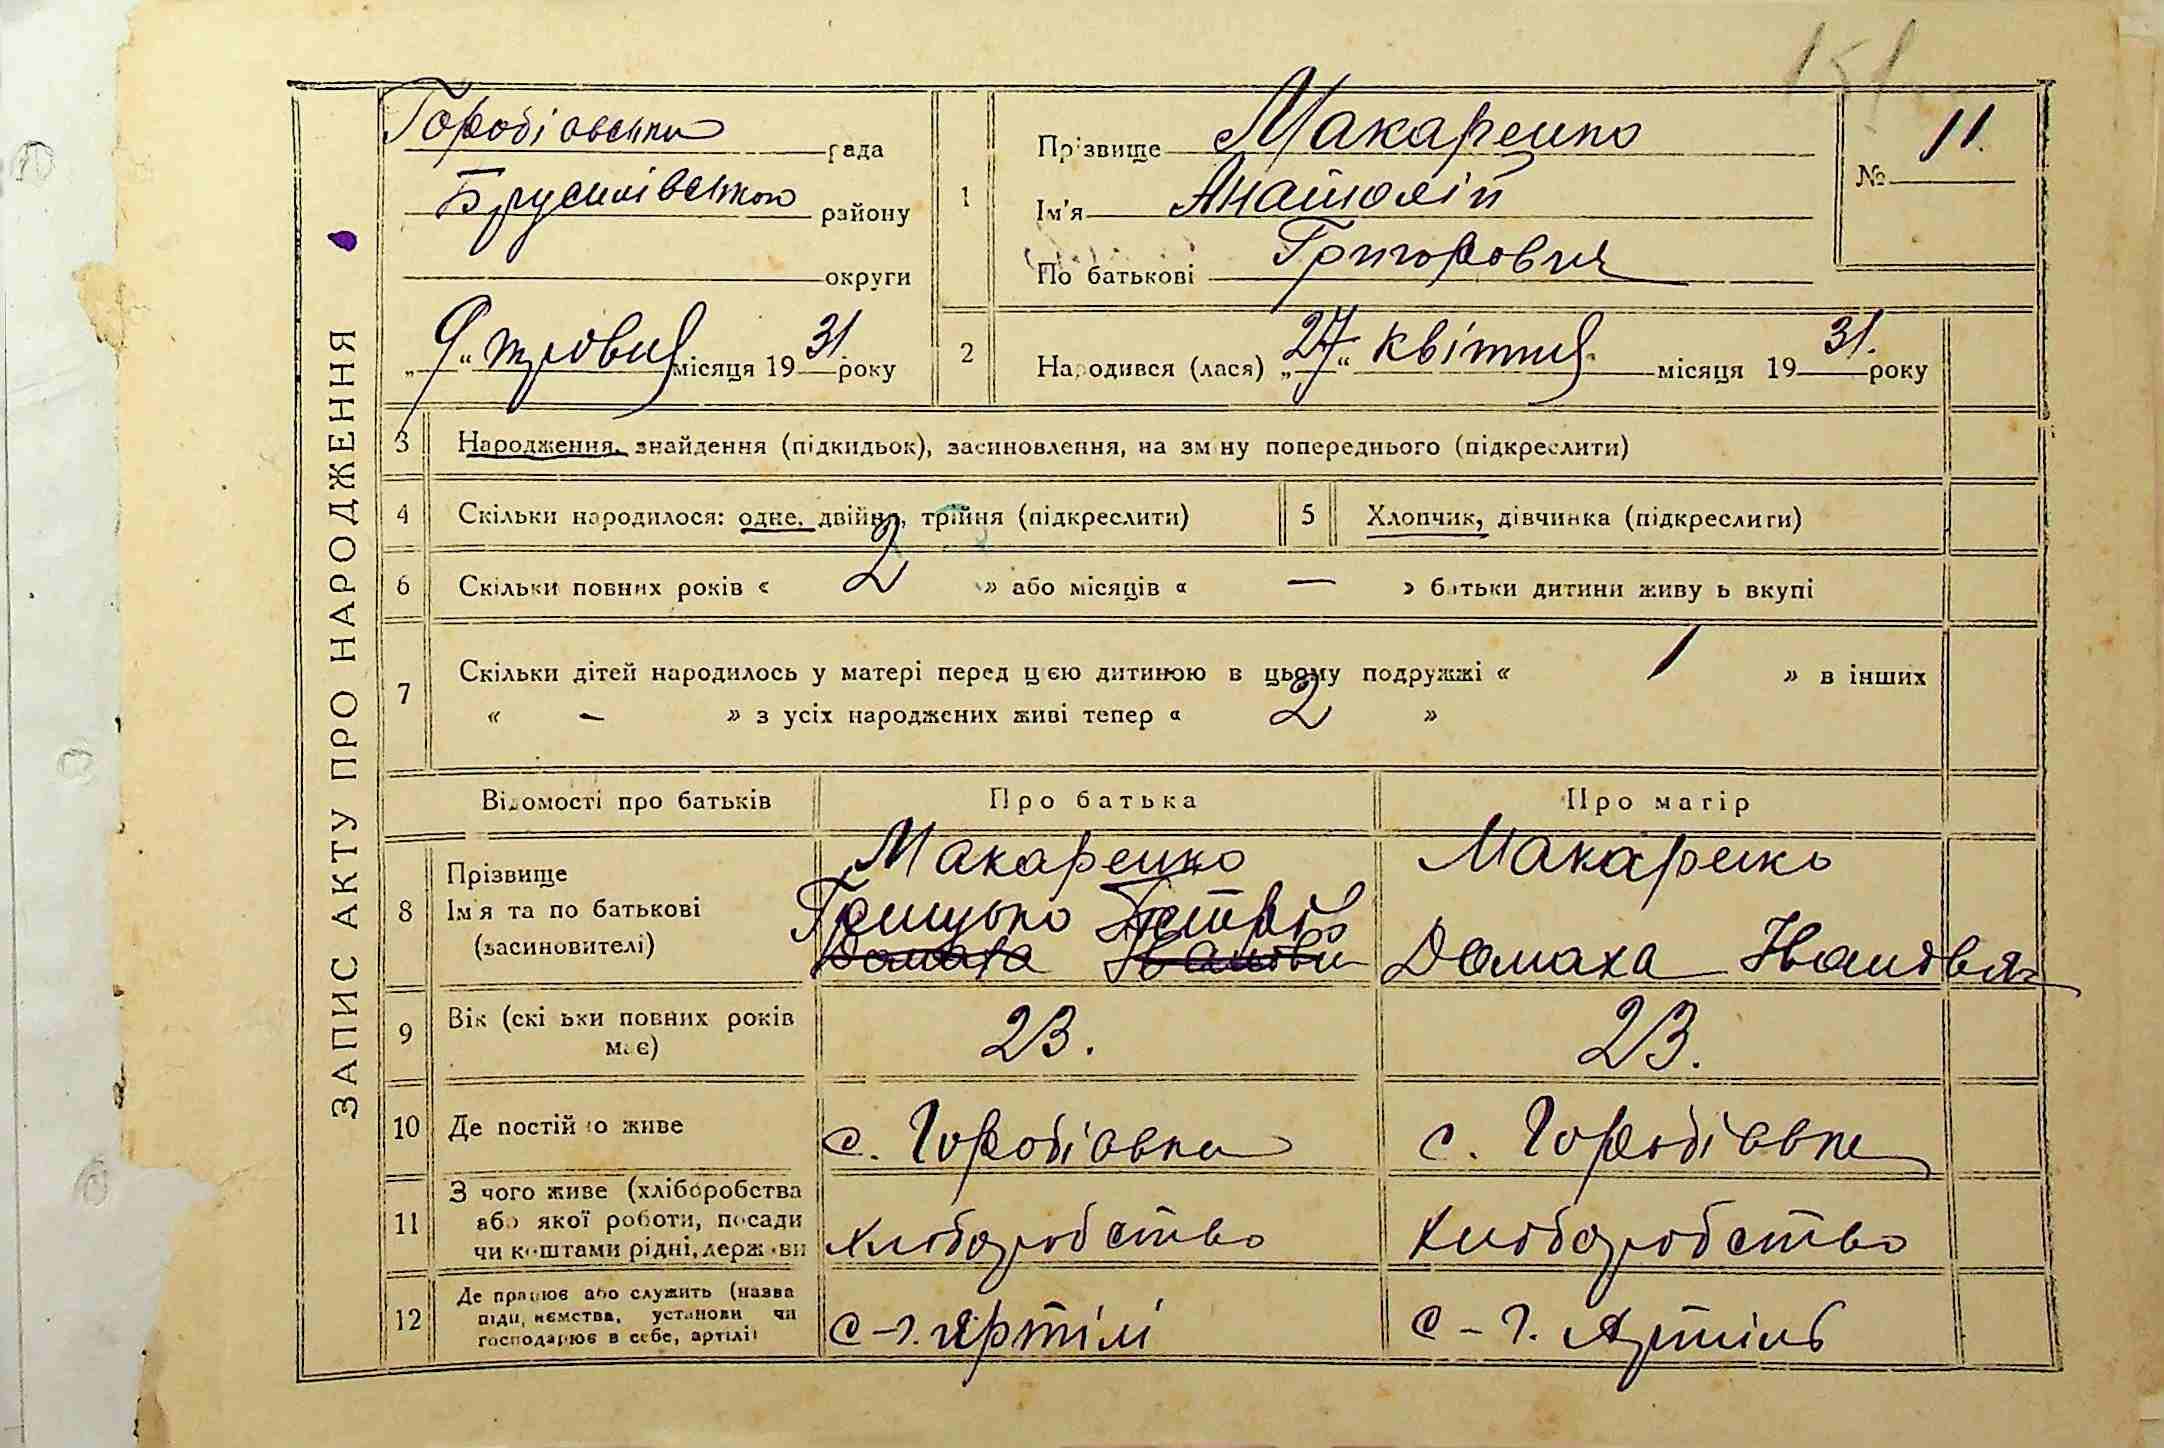 151
ЗАПИС АКТУ ПРО НАРОДЖЕННЯ
Горобіовська рада
Брусилівського району
округи
„9“ травня місяця 1931 року
1
Прізвище Макаренко
Ім'я Анатолій
По батькові Григорович
№ 11.
2
Народився (лася) „27“ квітня місяця 1931. року
3 Народження, знайдення (підкидьок), засиновлення, на зміну попереднього (підкреслити)
4 Скільки народилося: одне, двійня, трійня (підкреслити)
5 Хлопчик, дівчинка (підкреслити)
6 Скільки повних років « 2 » або місяців « — » батьки дитини живуть вкупі
7 Скільки дітей народилось у матері перед цією дитиною в цьому подружжі « 1 » в інших
« – » з усіх народжених живі тепер « 2 »
Відомості про батьків Про батька Про матір
8 Прізвище
Ім'я та по батькові
(засиновителі)
Макаренко
Грицько Петрів
Домаха Іванівна
Макаренко
Домаха Іванівна
9 Вік (скільки повних років
має)
23.
23.
10 Де постійно живе
с. Горобіовка
с. Горобіовка
11 З чого живе (хліборобства
або якої роботи, посади
чи коштами рідні, держави
хліборобство
хліборобство
12 Де працює або служить (назва
підприємства, установи чи
господарює в себе, артілі)
с-г. Артілі
с-г. Артіль